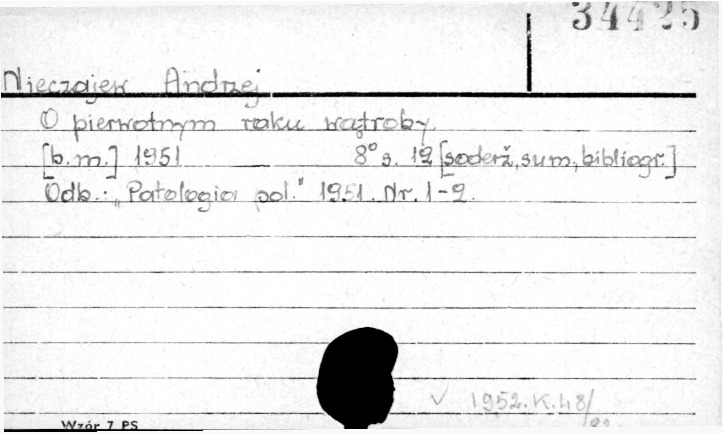 34425
Nieczajew Andrzej
O pierwotnym raku wątroby.
[b.m.] 1951 8° s. 12 [soderž, sum, bibliogr.]
Odb.: „Patologia pol." 1951. Nr. 1-2.
√ 1952.K.48/
Wzór 7 PS